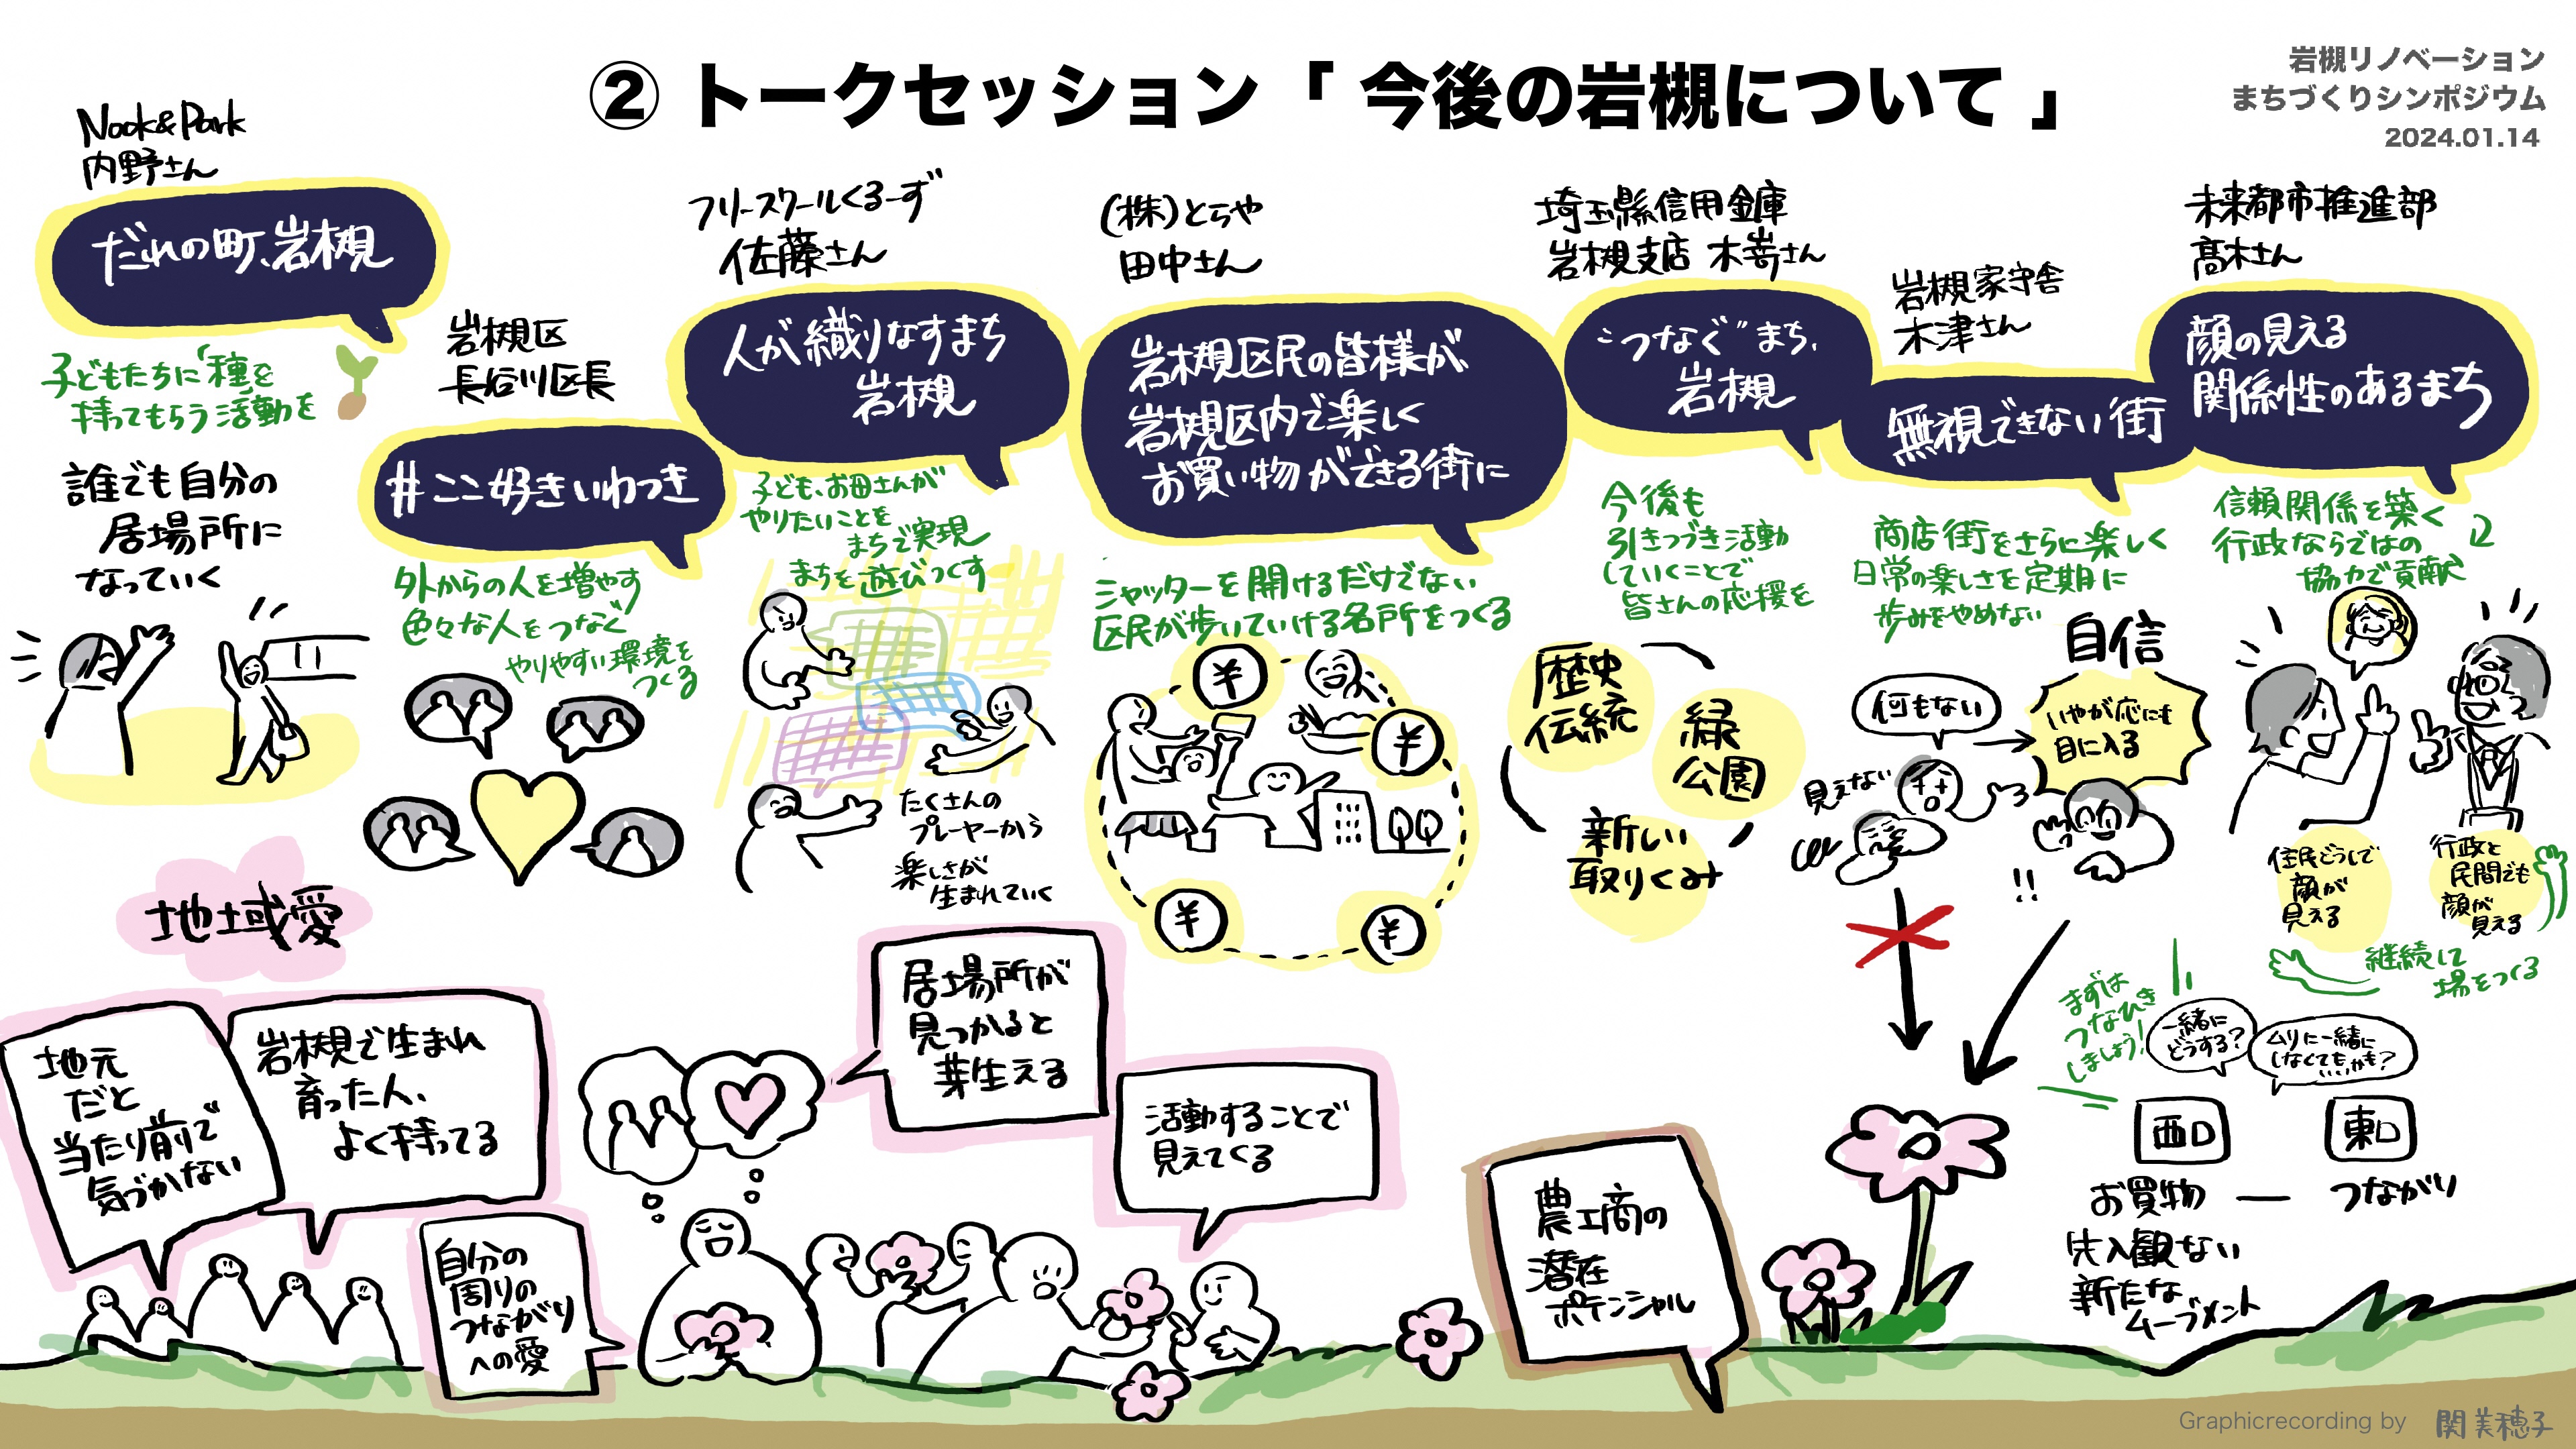 ② トークセッション「 今後の岩槻について 」
岩槻リノベーション
まちづくりシンポジウム
2024.01.14
Nook&Park
内野さん
だれの町、岩槻
子どもたちに「種」を
持ってもらう活動を
誰でも自分の
居場所に
なっていく
岩槻区
長谷川区長
#ここ好きいわつき
外からの人を増やす
色々な人をつなぐ
やりやすい環境を
つくる
フリースクールくるーず
佐藤さん
人が織りなすまち
岩槻
子ども、お母さんが
やりたいことを
まちで実現
まちを遊びつくす
たくさんの
プレーヤーから
楽しさが
生まれていく
(株)とらや
田中さん
岩槻区民の皆様が
岩槻区内で楽しく
お買い物ができる街に
シャッターを開けるだけでない
区民が歩いていける名所をつくる
¥
¥
¥
¥
埼玉縣信用金庫
岩槻支店 木嵜さん
"つなぐ"まち、
岩槻
今後も
引きつづき活動
していくことで
皆さんの応援を
歴史
伝統
緑
公園
新しい
取りくみ
岩槻家守舎
木津さん
無視できない街
商店街をさらに楽しく
日常の楽しさを定期に
歩みをやめない
自信
何もない
いやが応にも
目に入る
見えない
!!
未来都市推進部
髙木さん
顔の見える
関係性のあるまち
信頼関係を築く
行政ならではの
協力で貢献
住民どうしで
顔が
見える
行政と
民間でも
顔が
見える
継続して
場をつくる
まずは
つなひき
しましょう!
一緒に
どうする?
ムリに一緒に
しなくてもいいかも?
西口
東口
お買物 — つながり
先入観ない
新たな
ムーブメント
地域愛
地元
だと
当たり前で
気づかない
岩槻で生まれ
育った人、
よく持ってる
自分の
周りの
つながり
への愛
居場所が
見つかると
芽生える
活動することで
見えてくる
農工商の
潜在
ポテンシャル
Graphicrecording by 関美穂子